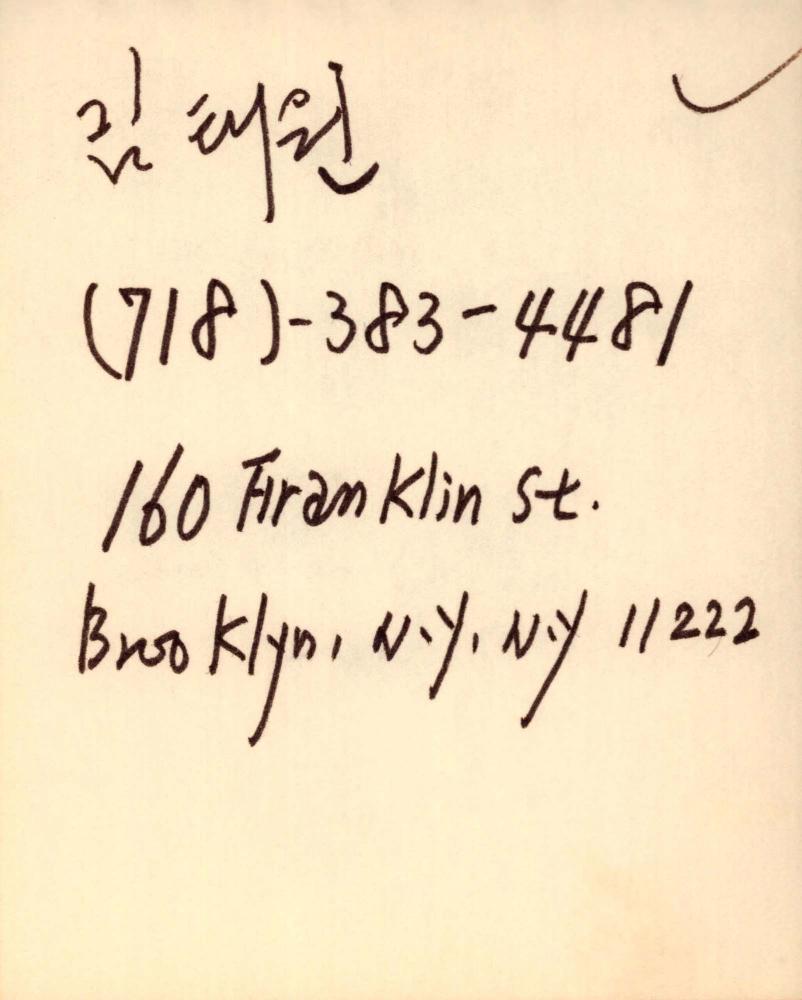 김태원
(718)-383-4481
160 Franklin St.
Brooklyn, N.Y, N.Y 11222